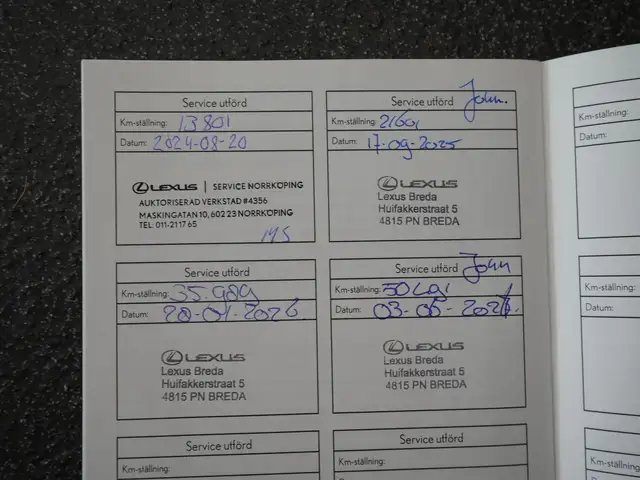 Service utförd
Km-ställning: 13801
Datum: 2024-08-20
LEXUS | SERVICE NORRKÖPING
AUKTORISERAD VERKSTAD #4356
MASKINGATAN 10, 602 23 NORRKÖPING
TEL: 011-21 17 65
Service utförd John.
Km-ställning:
Datum: 17-09-2025
LEXUS
Lexus Breda
Huifakkerstraat 5
4815 PN BREDA
Service utförd
Km-ställning: 35.989
Datum: 28-01-2026
LEXUS
Lexus Breda
Huifakkerstraat 5
4815 PN BREDA
Service utförd John
Km-ställning:
Datum:
LEXUS
Lexus Breda
Huifakkerstraat 5
4815 PN BREDA
Service utförd
Km-ställning:
Service utförd
Km-ställning:
Km-ställning:
Datum:
Km-ställning:
Datum:
Km-ställning: